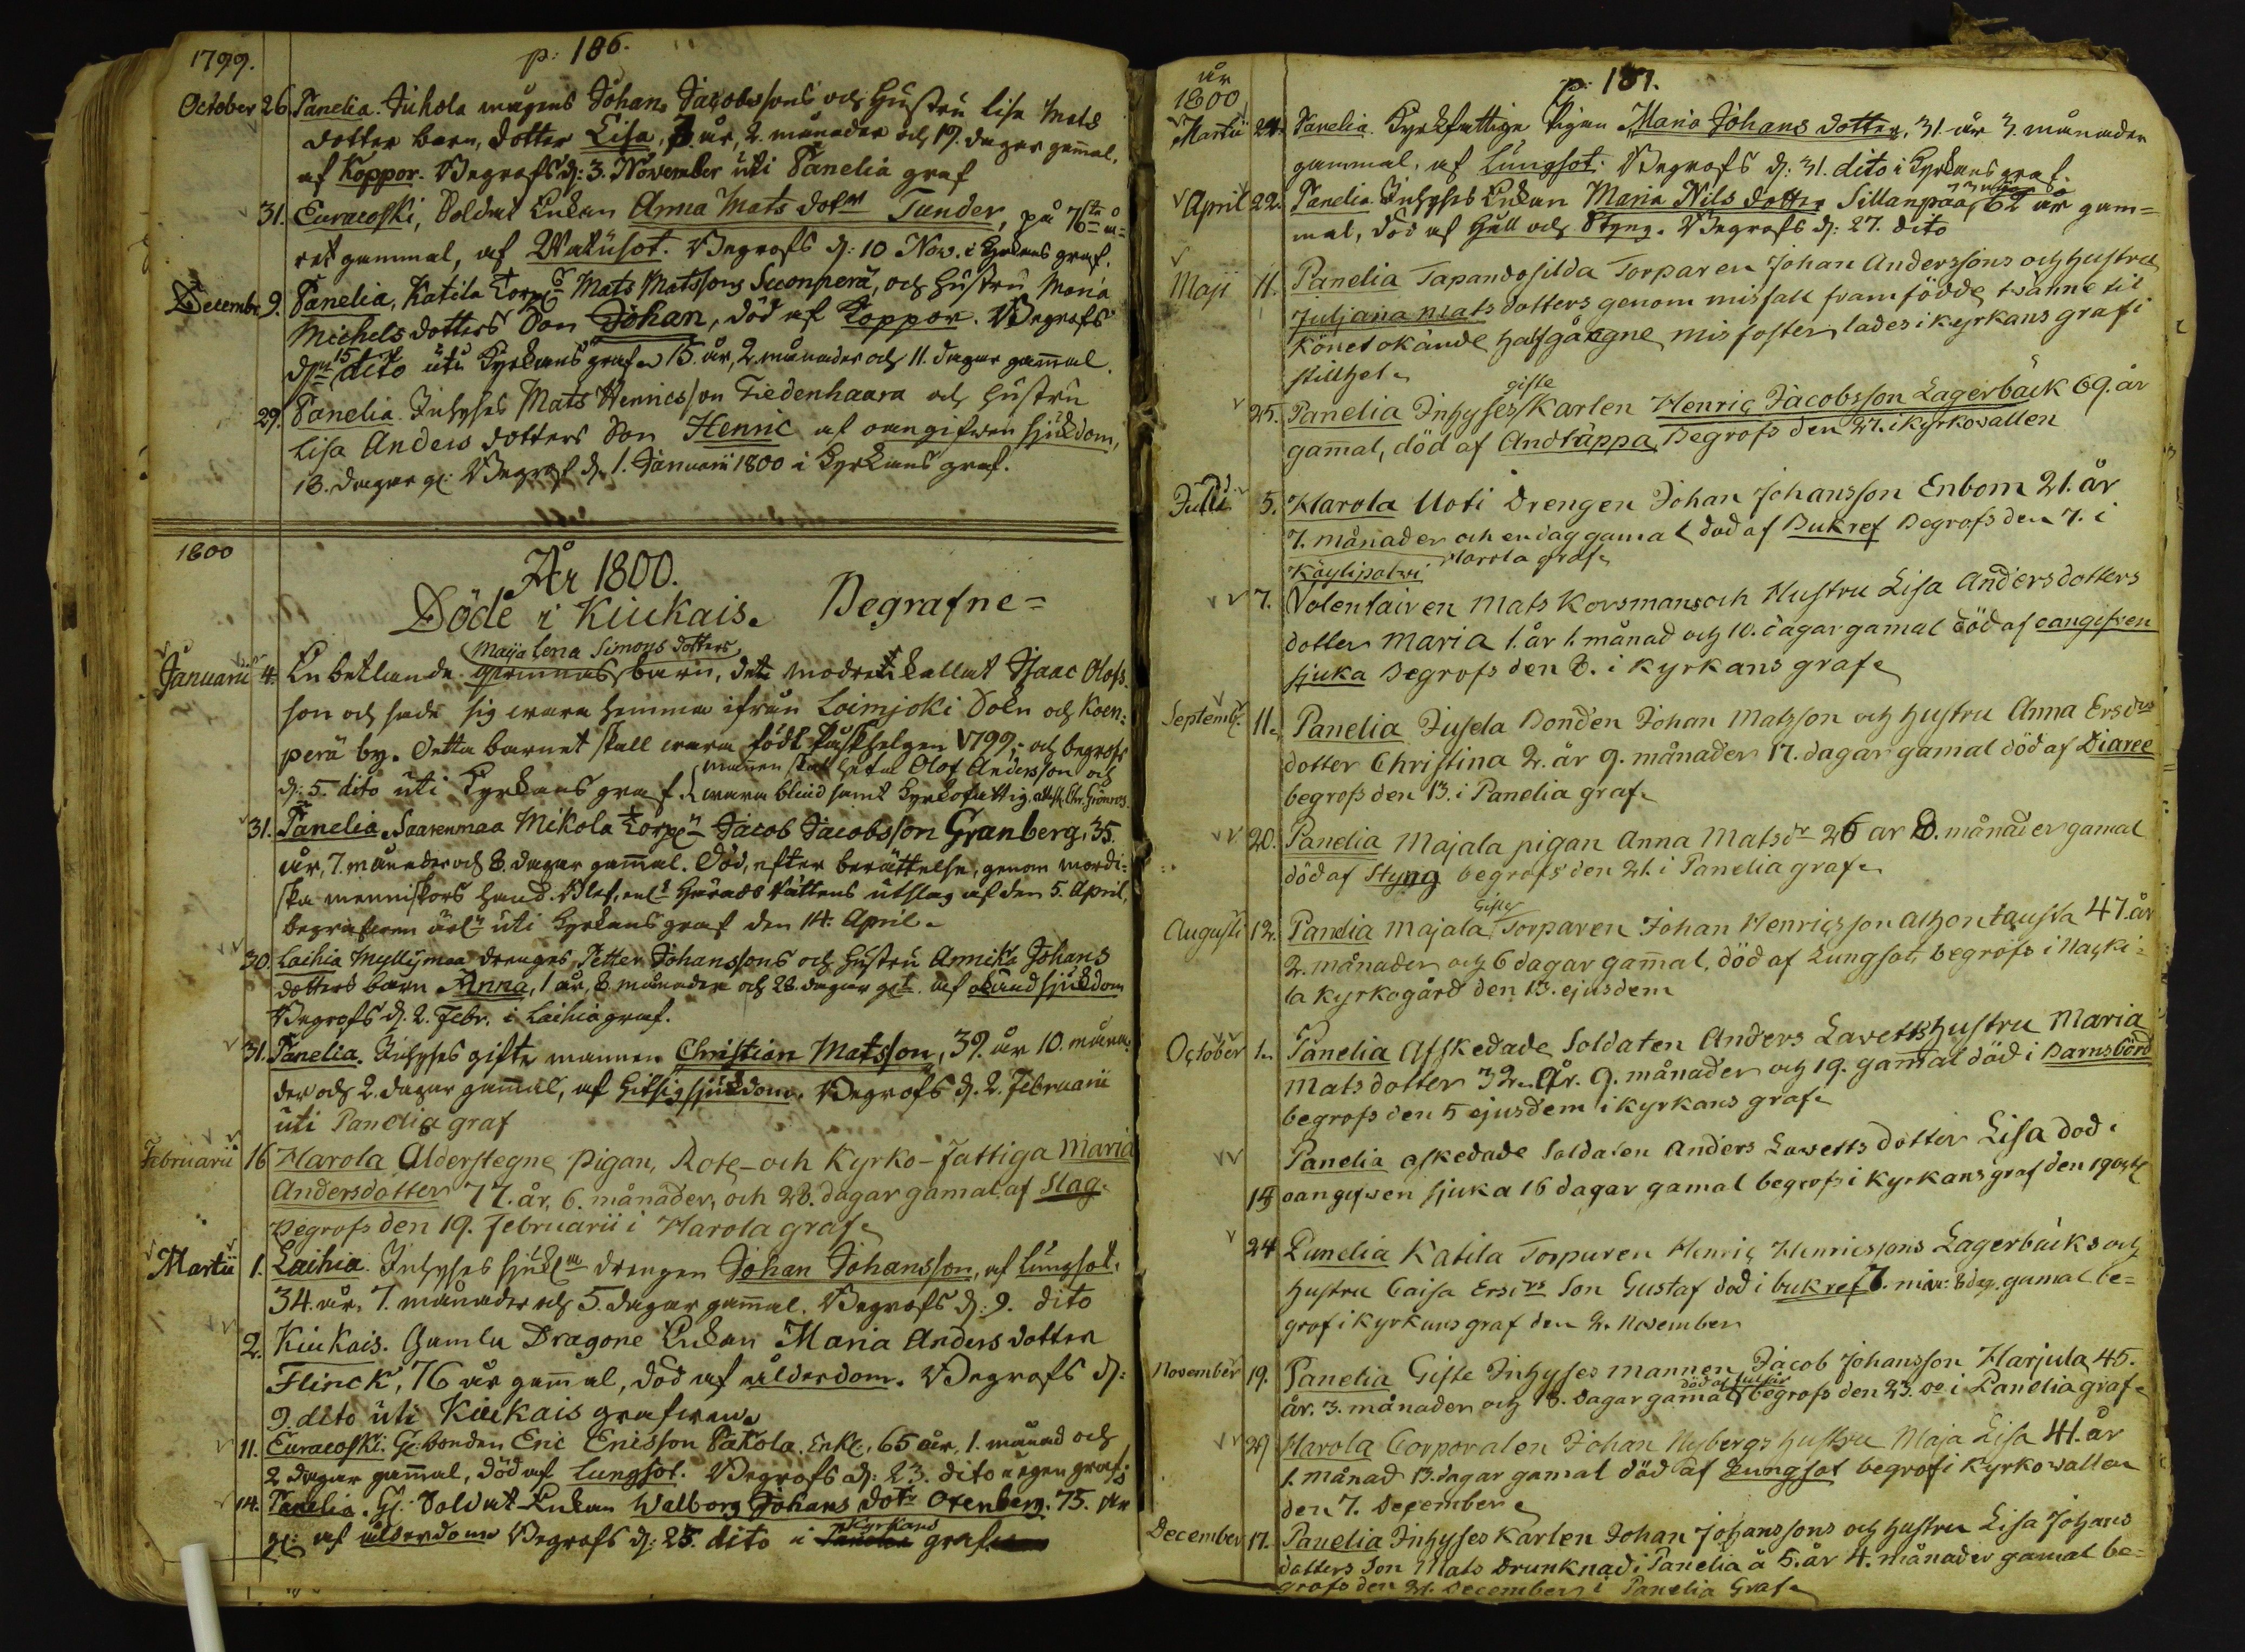 1799. p: 186.
October 26. Panelia. Juhola mågens Johans Jacobssons och Hustru Lisa Mats
dotter barn, dotter Lisa, 3. år, 2. månader och 19. dagar gam̄al,
af Koppor. Begrofs d: 3. November uti Panelia graf
31. Euracoski, Soldat Enkan Anna Mats dotr Tunder, på 76te å=
ret gammal, af Watusot. Begrofs d: 10 Nov. i Kyrkans graf.
Decembr. 9. Panelia, Katila Torp. Mats Matssons Suonperä, och Hustru Maria
Michels dotters Son Johan, död af Koppor. Begrofs
d. 15 dito uti Kyrkans graf 13. år, 2. månader och 11. dagar gam̄al.
29. Panelia Inhyses Mats Henricsson Tiedenhaara och Hustru
Lisa Anders dotters Son Henric af oangifwen sjukdom,
13. dagar gl: Begrof d. 1. Januarii 1800 i Kyrkans graf.
1800
År 1800.
Döde i Kiukais. Begrafne=
Maija Lena Simons dotters
Januarii 4. En betlande qwinnas barn, det modren kallat Isaac Olofs-
son och sade sig wara hemma ifrån Loimjoki Soln och Koen-
perä by. Detta barnet skall wara födt Påskhelgen 1799, och begrofs
mannen skall heta Olof Andersson och
d: 5. dito uti Kyrkans graf. wara blind samt Kyrkofattig,
31. Panelia Saarenmaa Mikola Torp. Jacob Jacobsson Granberg, 35.
år, 7. månader och 8. dagar gam̄al. Död, efter berättelse, genom mordi-
ska menniskors hand. Blef, enl. Härads Rättens utslag af den 5. April,
begrafwen uti Kyrkans graf den 14. April.
30. Laihia Myllymaa drengs Petter Johanssons och Hustru Annika Johans
dotters barn Anna, 1 år, 8 månader och 28. dagar gl. af okänd sjukdom
Begrofs d. 2. Febr. i Laihia graf.
31. Panelia. Inhyses gifte mannen Christian Matsson, 39. år 10. måna-
der och 2. dagar gam̄al, af hitsig sjukdom. Begrofs d. 2. Februarii
uti Panelia graf
Februarii 16 Harola Ålderstegne Pigan, Rote- och Kyrko-fattiga Maria
Andersdotter 77. år, 6. månader, och 28. dagar gamal, af Slag.
Begrofs den 19. Februarii i Harola graf.
Martii 1. Laihia. Inhyses drengen Johan Johansson, af Lungsot.
34. år, 7. månader och 5. dagar gam̄al. Begrofs d: 9. dito
2. Kiukais. Gamla Dragone Enkan Maria Anders dotter
Flinck, 76 år gam̄al, död af ålderdom. Begrofs d:
9. dito uti Kiukais grafwen.
11. Euracoski. Gl: bonden Eric Ericsson Pakola, Enkl:, 65 år, 1. månad och
2 dagar gam̄al, död af Lungsot. Begrofs d: 23. dito i egen graf.
14. Panelia. Gl: Soldat-Enkan Walborg Johans dotr Oxenberg. 75. år
Kyrkans
gl: af ålderdom Begrofs d: 23. dito i Panelia graf
år
1800 p: 187.
Martii 24. Panelia. Kyrkfattige Pigan Maria Johans dotter, 31. år 3. månader
gammal, af Lungsot. Begrofs d: 31. dito i Kyrkans graf.
April 22. Panelia Inhyses Enkan Maria Nils dotter Sillanpää, 62 år gam=
mal, död af Håll och Styng. Begrofs d: 27. dito
Maji 11. Panelia Tapandosilda Torparen Johan Anderssons och hustru
Juljana Mats dotters genom misfall framfödde, twänne til
Könet okände halfgångne misfoster lades i Kyrkans graf i
stillhet.
gifte
25. Panelia Inhyses Karlen Henric Jacobsson Lagerbäck 69. år
gam̄al, död af Andtäppa, Begrofs den 27. i Kyrkowallen
Julii 5. Harola Uoti Drengen Johan Johansson Enbom 21. år
7. månader och en dag gamal död af Bukref Begrofs den 7. i
Köylipolwi Harola graf.
7. Volentairen Mats Korsmans och Hustru Lisa Andersdotters
dotter Maria 1. år 1. månad och 10. dagar gamal död af oangifven
sjuka Begrofs den 8. i Kyrkans graf.
Septemb. 11. Panelia Jusela Bonden Johan Matsson och hustru Anna Ersdrs
dotter Christina 2. år 9. månader 17. dagar gamal död af Diaree
begrofs den 13. i Panelia graf.
20. Panelia Majala pigan Anna Matsdr 26 år 8. månader gamal
död af Styng begrofs den 21. i Panelia graf.
Gifte
Augusti 12. Panelia Majala Torparen Johan Henricsson Ahontausta 47. år
2. månader och 6 dagar gam̄al, död af Lungsot, begrofs i Nacki-
la Kyrkogård den 13. ejusdem
October 1. Panelia Afskedade Soldaten Anders Lavetts hustru Maria
Mats dotter 32. år. 9. månader och 19. gam̄al död i Barnsbörd
begrofs den 5 ejusdem i Kyrkans graf.
Panelia afskedade Soldaten Anders Lawetts dotter Lisa död i
14 oangifwen sjuka 16 dagar gamal begrofs i Kyrkans graf den 19 oct.
24 Panelia Katila Torparen Henric Henricssons Lagerbäcks och
hustru Caisa Ersdrs Son Gustaf död i bukref 7. mån: 8 dag. gamal be=
grof i Kyrkans graf den 2. November
November 19. Panelia Gifte Inhyses mannen Jacob Johansson Harjula 45.
död af
år. 3. månader och 18. dagar gamal begrofs den 23. do i Panelia graf.
29 Harola Corporalen Johan Nybergs hustru Maja Lisa 41. år
1. månad 13. dagar gamal död af Lungsot begrof i Kyrkowallen
den 7. December.
December 17. Panelia Inhyses Karlen Johan Johanssons och hustru Lisa Johans
dotters Son Mats Drunknad i Panelia å 5. år 4. månader gamal be-
grofs den 21. December i Panelia Graf.